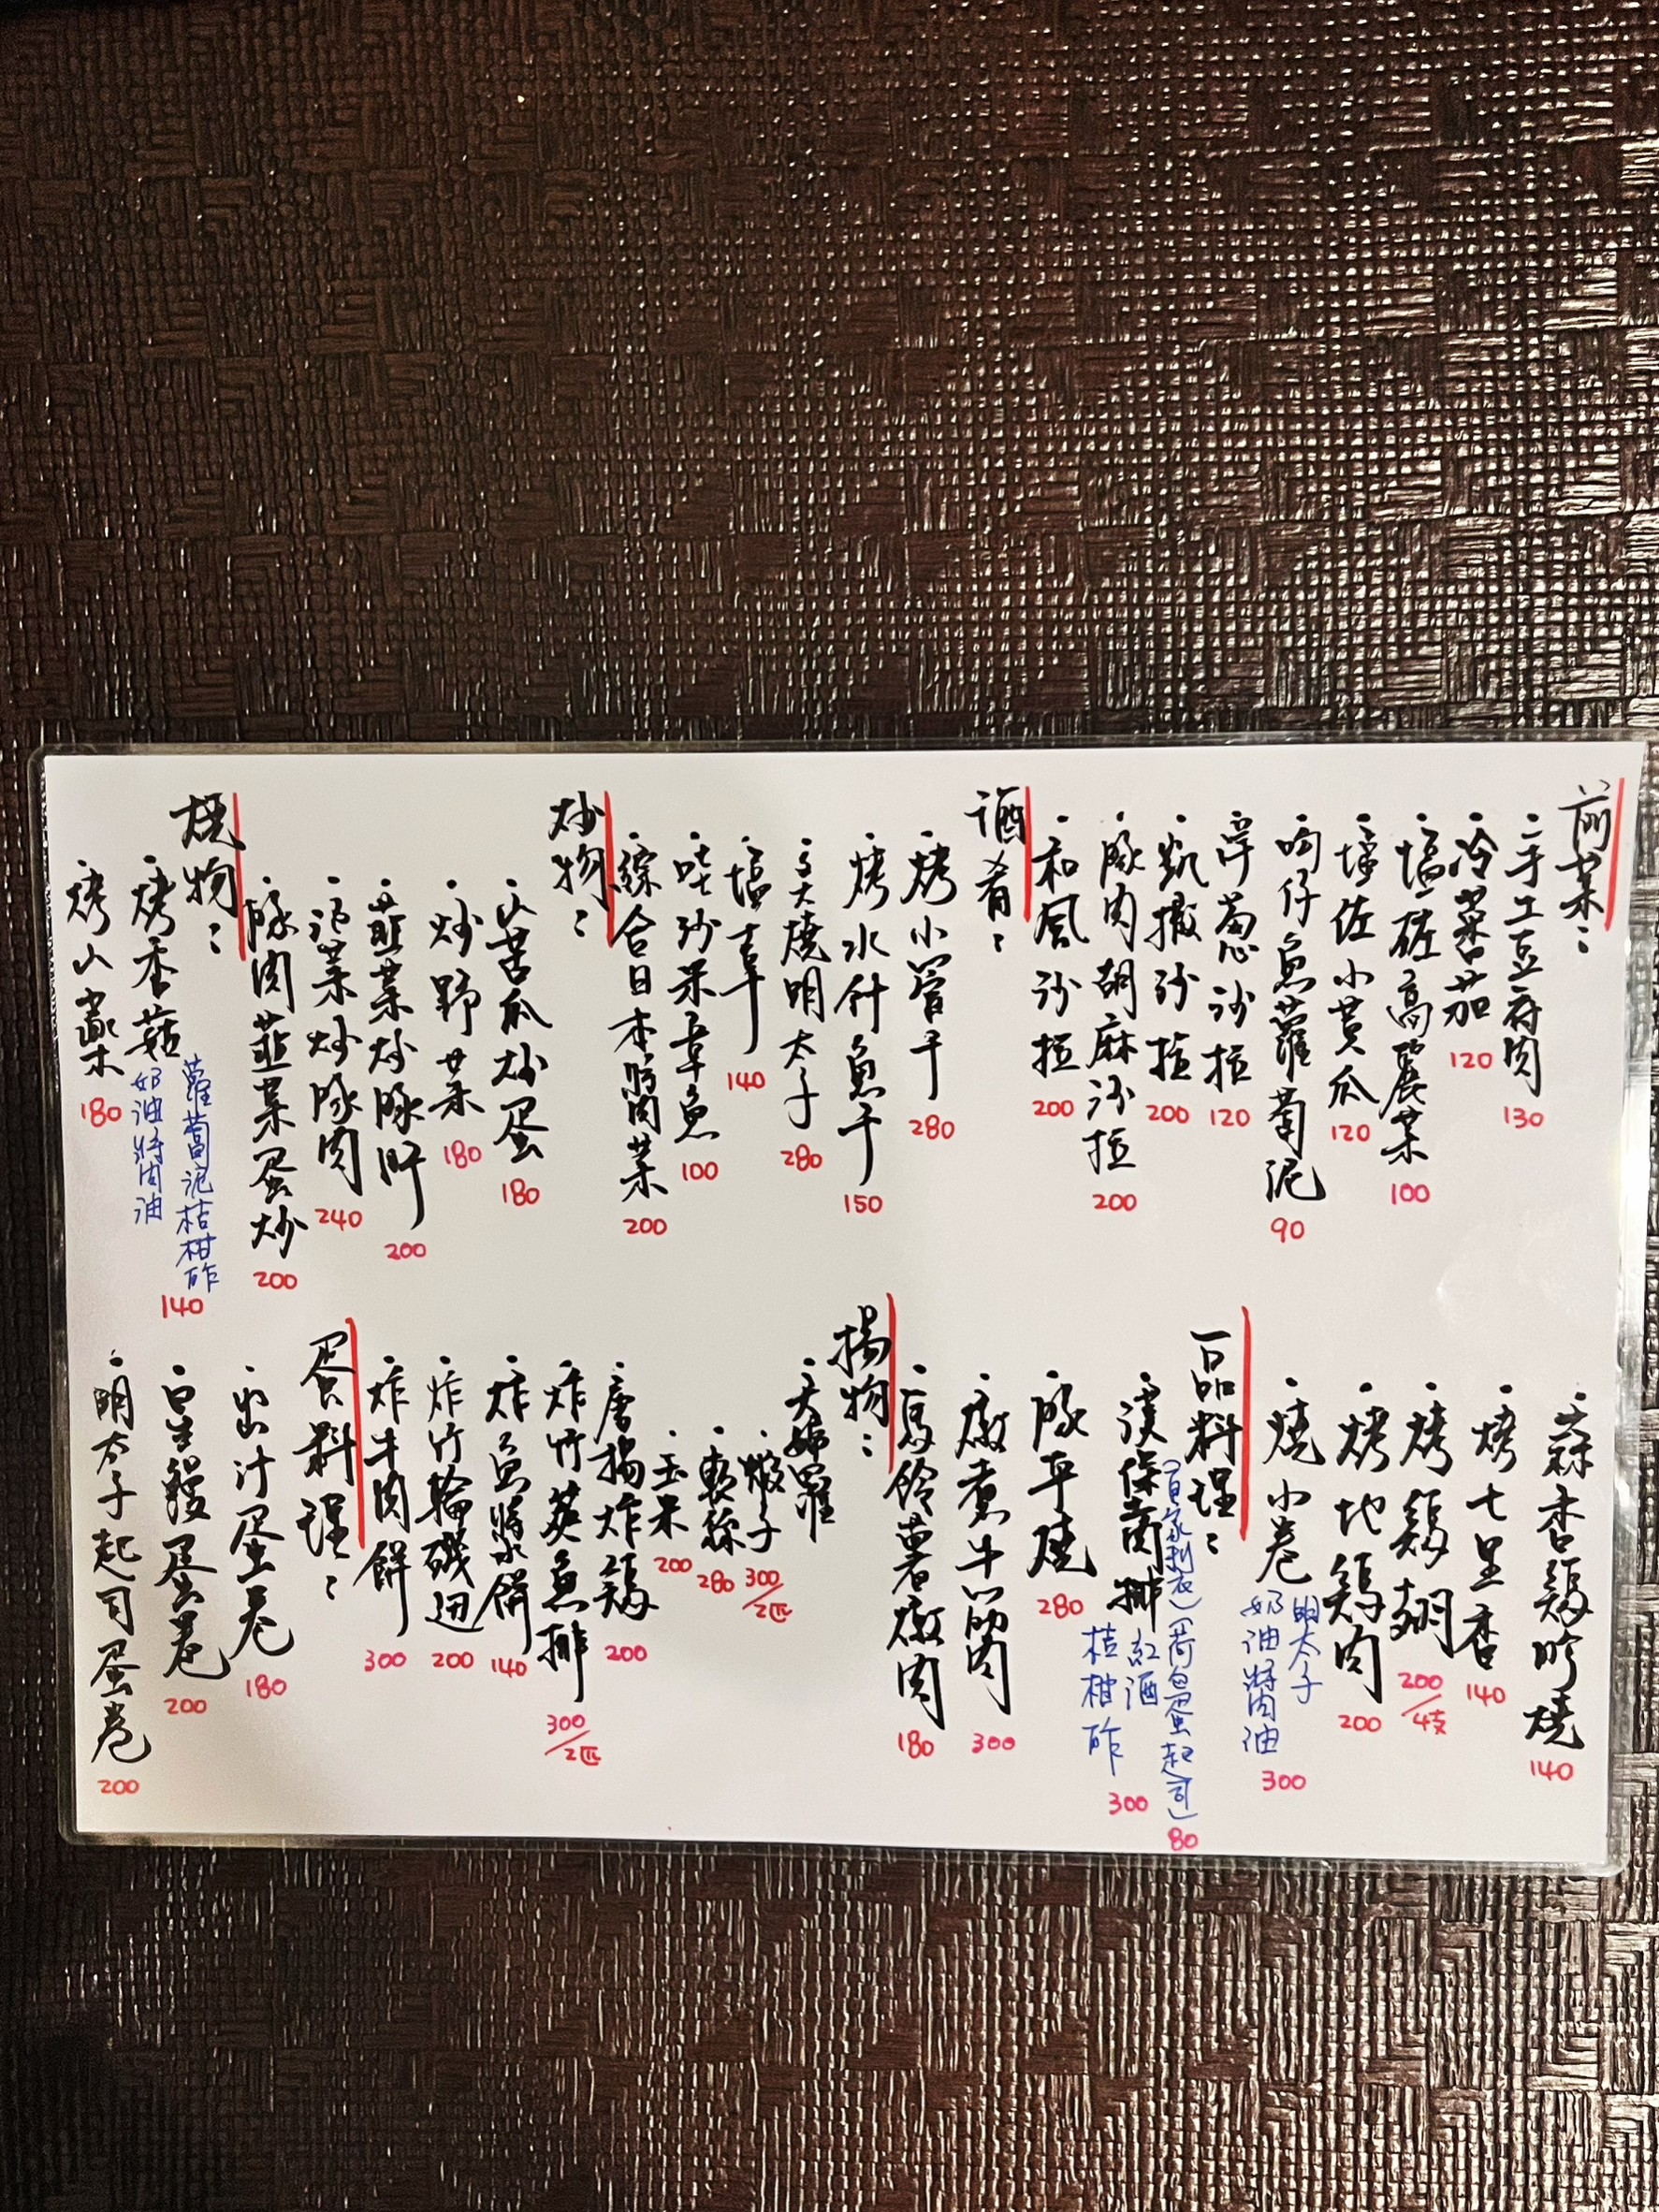 前菜：
・手工豆府肉 130
・冷蕃茄 120
・塩磋高麗菜 100
・塩佐小黄瓜 120
・吻仔魚蘿蔔泥 90
・洋蔥沙拉 120
・凱撒沙拉 200
・豚肉胡麻沙拉 200
・和風沙拉 200
酒肴：
・烤小管干 280
・烤水針魚干 150
・大燒明太子 280
・塩辛 140
・哇沙米章魚 100
・綜合日本醬菜 200
炒物：
・山苦瓜炒蛋 180
・炒野菜 180
・韮菜炒豚肝 200
・泡菜炒豚肉 240
・豚肉韮菜蛋炒 200
燒物：
・烤香菇
蘿蔔泥桔柑酢
奶油將肉油
140
・烤山藥 180
・蒜香鷄昑燒 140
・烤七里香 140
・烤鷄翅 200/4支
・烤地鷄肉 200
・燒小卷
明太子
奶油將肉油
300
一品料理：
・漢保商排
(百家利衣)(荷包蛋起司) 80
紅酒
桔柑酢
300
・豚平燒 280
・燉煮牛筋肉 300
・馬鈴薯燉肉 180
揚物：
・天婦羅
・蝦子 300/2匹
・軟絲 280
・玉米 200
・唐揚炸鷄 200
・炸竹莢魚排 300/2匹
・炸魚將冰餅 140
・炸竹輪磯迊 200
・炸牛肉餅 300
蛋料理：
・出汁蛋卷 180
・星鰻蛋卷 200
・明太子起司蛋卷 200